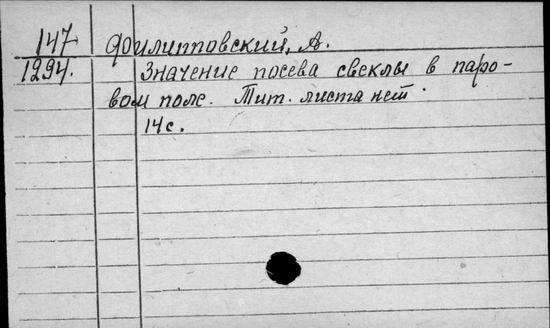 147 Филипповский, А.
1294. Значение посева свеклы в паро-
вом поле. Тит. листа нет.
14 с.